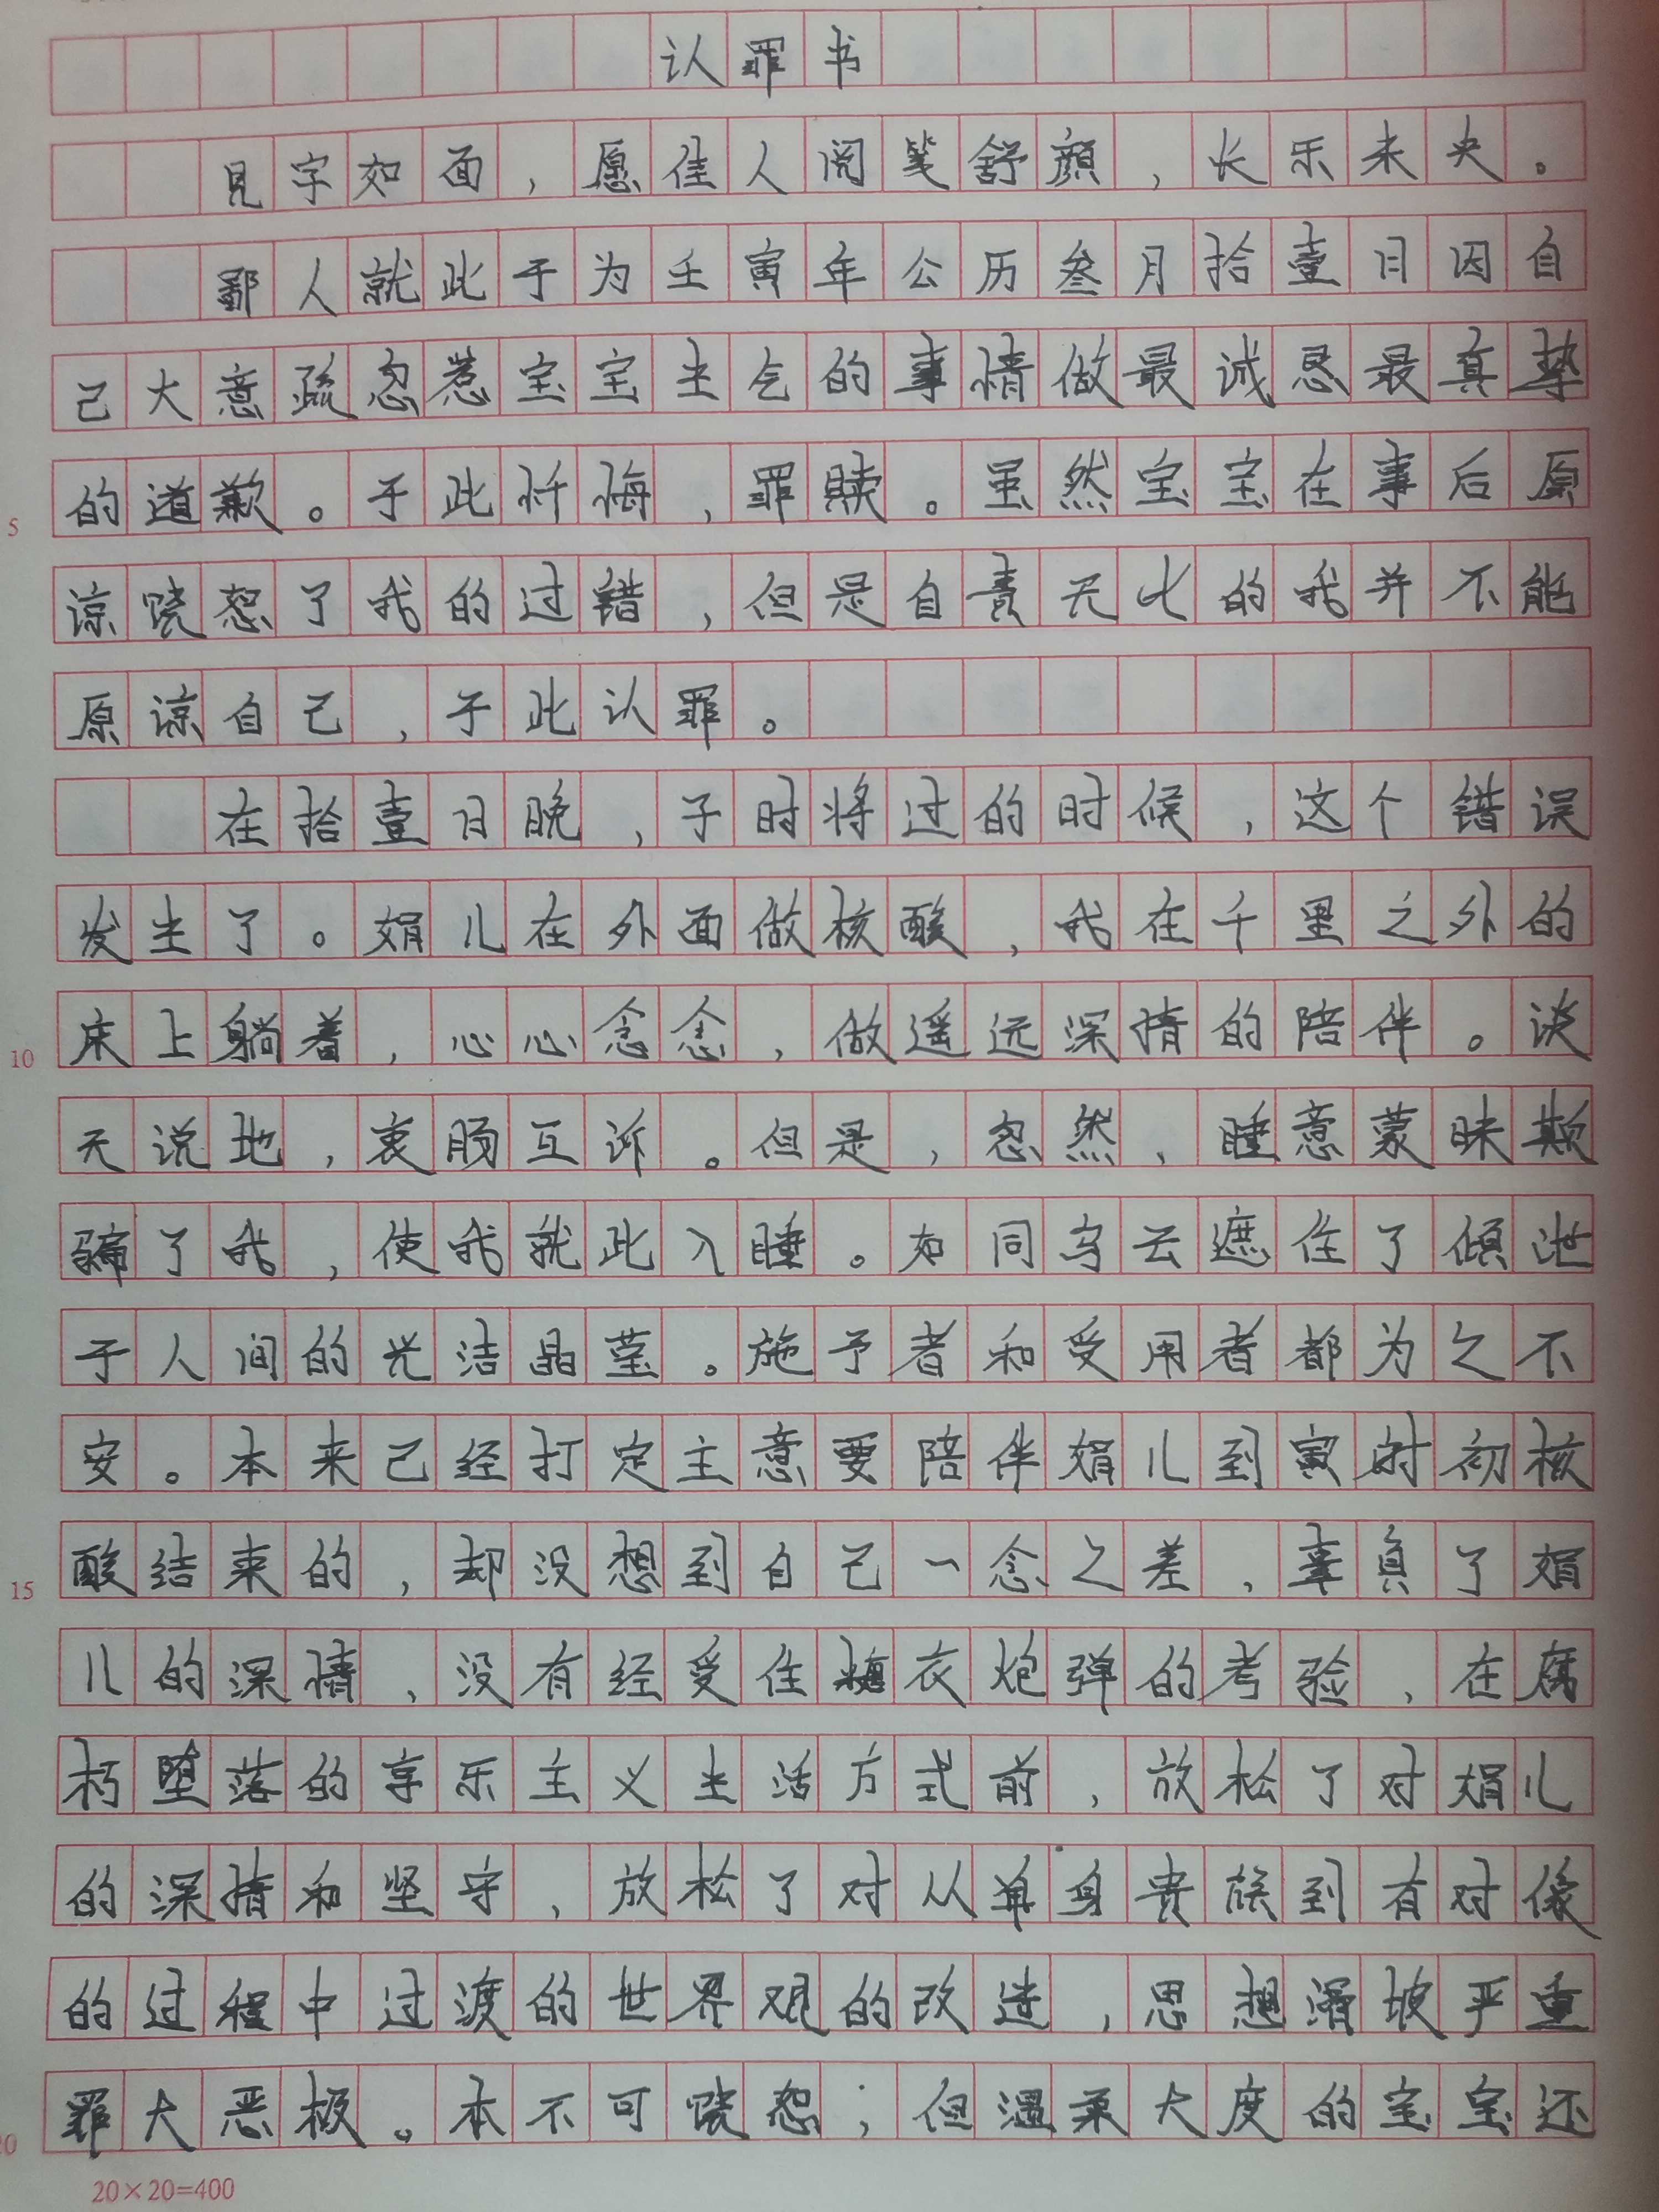 认罪书
見字如面，愿佳人阅笺舒颜，长乐未央。
鄙人就此于为壬寅年公历叁月拾壹日因自
己大意疏忽惹宝宝生气的事情做最诚恳最真挚
的道歉。于此忏悔，罪赎。虽然宝宝在事后原
5
谅饶恕了我的过错，但是自责无比的我并不能
原谅自己，于此认罪。
在拾壹日晚，子时将过的时候，这个错误
发生了。娟儿在外面做核酸，我在千里之外的
床上躺着，心心念念，做遥远深情的陪伴。谈
10
天说地，衷肠互诉。但是，忽然，睡意蒙昧欺
骗了我，使我就此入睡。如同乌云遮住了倾泄
于人间的光洁晶莹。施予者和受用者都为之不
安。本来已经打定主意要陪伴娟儿到寅时初核
酸结束的，却没想到自己一念之差，辜负了娟
15
儿的深情，没有经受住糖衣炮弹的考验，在腐
朽堕落的享乐主义生活方式前，放松了对娟儿
的深情和坚守，放松了对从单身贵族到有对像
的过程中过渡的世界观的改造，思想滑坡严重
罪大恶极。本不可饶恕；但温柔大度的宝宝还
20×20=400